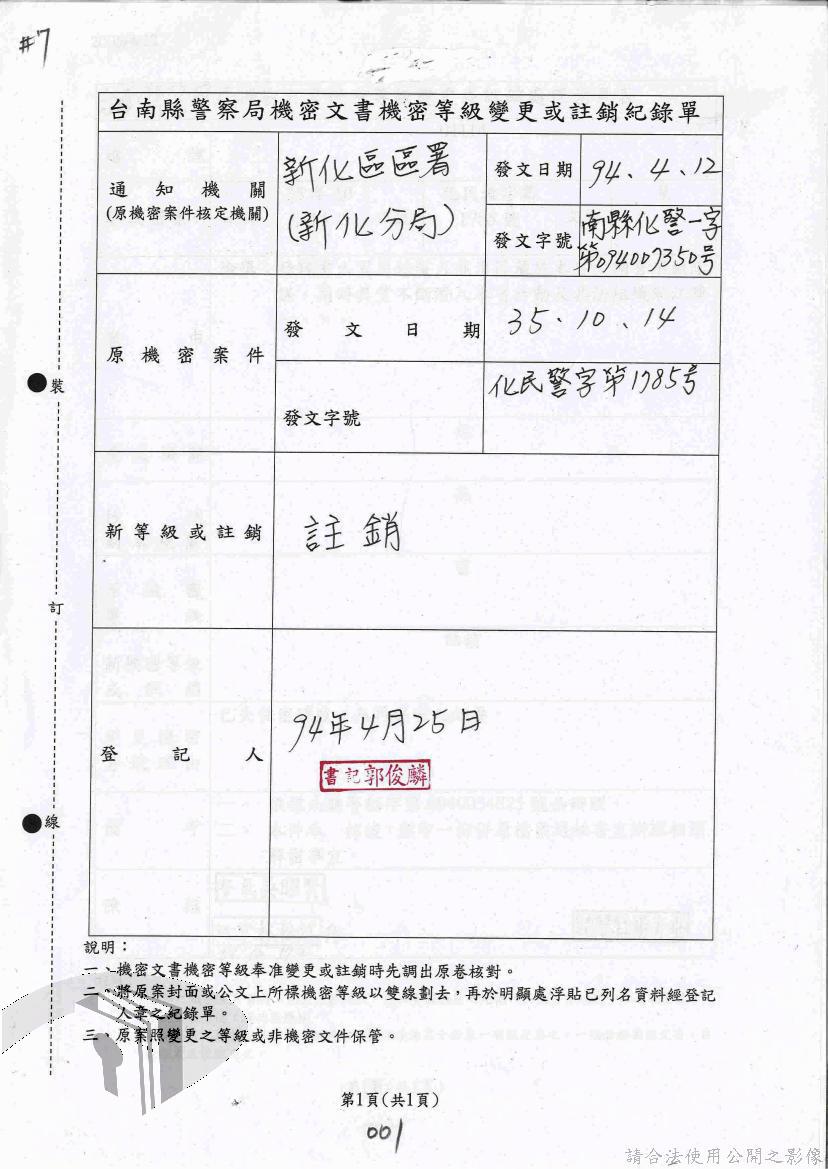 #7
台南縣警察局機密文書機密等級變更或註銷紀錄單
通知機關
(原機密案件核定機關)
新化區區署
(新化分局)
發文日期
94.4、12
發文字號
南縣化警一字
第094007350号
原機密案件
發文日期
35.10、14
發文字號
化民警字第1785号
新等級或註銷
註銷
登記人
94年4月25日
書記郭俊麟
裝
訂
線
說明:
一、機密文書機密等級奉准變更或註銷時先調出原卷核對。
二、將原案封面或公文上所標機密等級以雙線劃去,再於明顯處浮貼已列名資料經登記
人章之紀錄單。
三、原案照變更之等級或非機密文件保管。
第1頁(共1頁)
001
請合法使用公開之影像